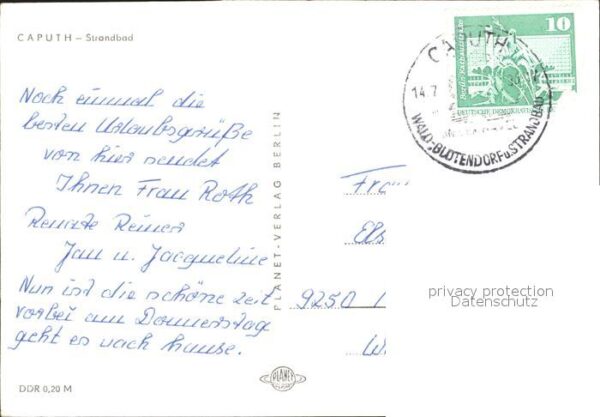 CAPUTH – Strandbad
10
Berlin
DEUTSCHE DEMOKRATI
CAPUTH
14.7
WALD-BLÜTENDORF u. STRANDBAD
Noch einmal die
besten Urlaubsgrüße
von hier sendet
Ihnen Frau Roth
Renate Reiner
Jan u. Jacqueline
Nun ist die schöne Zeit
vorbei am Donnerstag
geht es nach hause.
PLANET-VERLAG BERLIN
Fra
9250
privacy protection
Datenschutz
PLANET
DDR 0,20 M